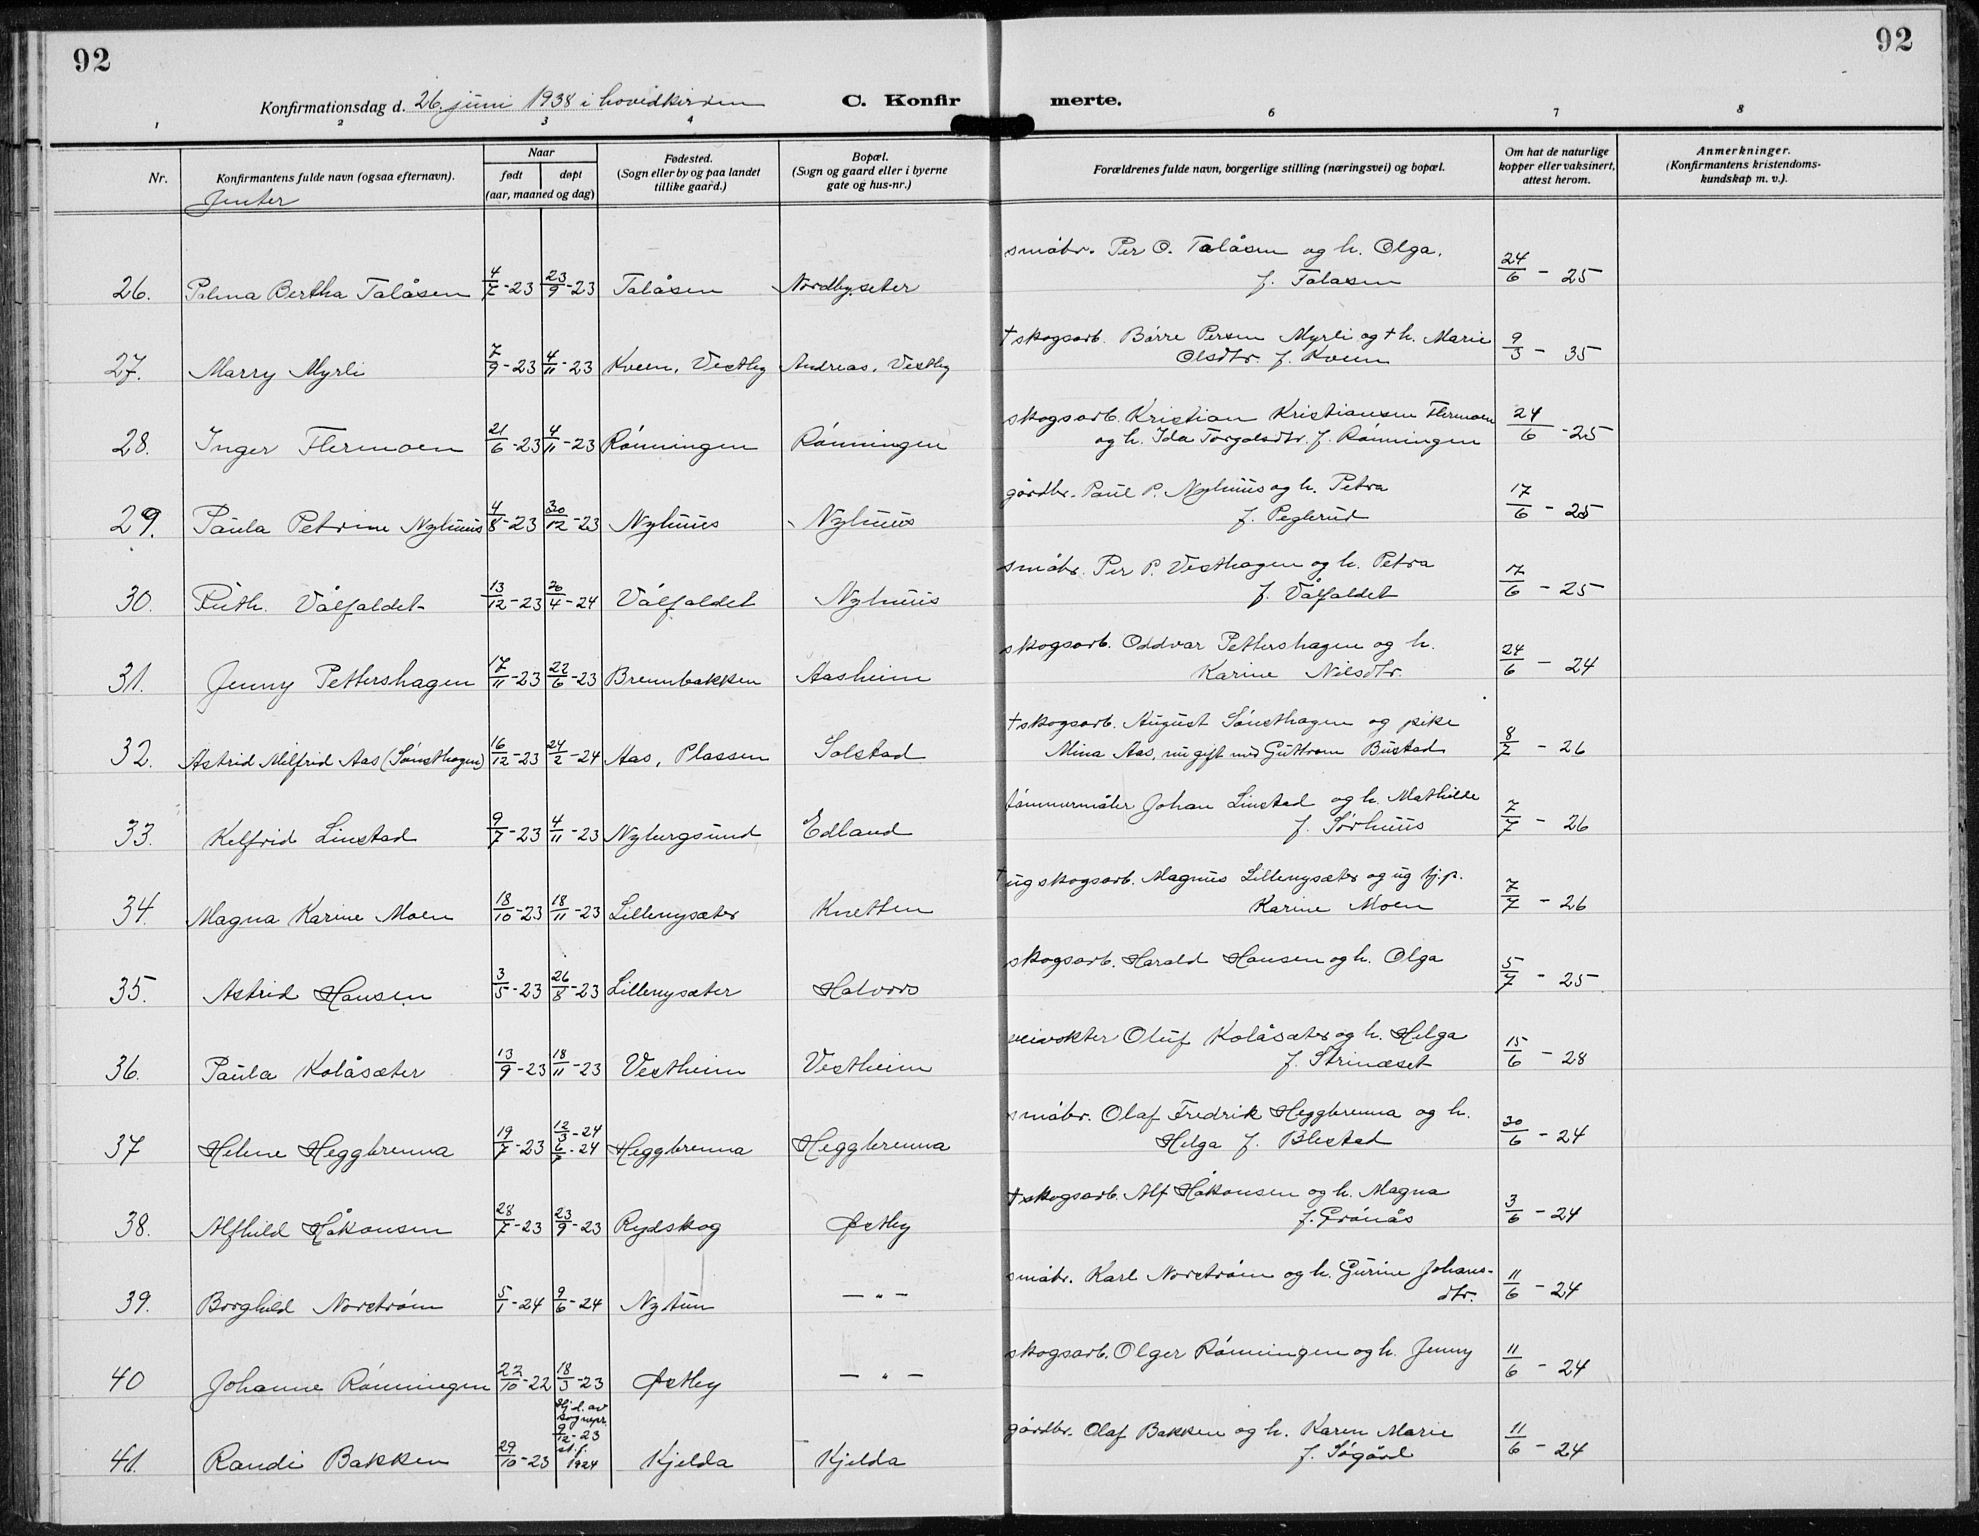 92
92
Konfirmationsdag d. 26. juni 1938 i hovedkirken
C. Konfirmerte.
1 2 3 4 6 7 8
Nr.
Konfirmantens fulde navn (ogsaa efternavn).
Naar
født døpt
(aar, maaned og dag)
Fødested.
(Sogn eller by og paa landet
tillike gaard.)
Bopæl.
(Sogn og gaard eller i byerne
gate og hus-nr.)
Forældrenes fulde navn, borgerlige stilling (næringsvei) og bopæl.
Om hat de naturlige
kopper eller vaksinert,
attest herom.
Anmerkninger.
(Konfirmantens kristendoms-
kundskap m. v.).
Jenter
småbr. Per O. Talåsen og h. Olga.
26. Palma Bertha Talåsen 4/7-23 23/9-23 Talåsen Nordbyseter f. Talåsen 24/6 - 25
† skogsarb. Børre Persen Myrli og † h. Marie
27. Marry Myrli 7/9-23 4/11-23 Kveen, Vestby Andreas, Vestby Olsdtr. f. Kveen 9/3 - 35
skogsarb. Kristian Kristiansen Flermoen
28. Inger Flermoen 21/6-23 4/11-23 Rønningen Rønningen og h. Ida Torgalsdtr. f. Rønningen 24/6 - 25
gårdbr. Paul P. Nyhuus og h. Petra
29. Paula Petrine Nyhuus 4/8-23 30/12-23 Nyhuus Nyhuus f. Peglerud 17/6 - 25
småbr. Per P. Vesthagen og h. Petra
30. Ruth Vålfaldet 13/12-23 20/4-24 Vålfaldet Nyhuus f. Vålfaldet 17/6 - 25
skogsarb. Oddvar Pettershagen og h.
31. Jenny Pettershagen 17/11-23 22/6-23 Brennbakken Aasheim Karine Nilsdtr. 24/6 - 24
† skogsarb. August Sønsthagen og pike
32. Astrid Milfrid Aas (Sønsthagen) 16/12-23 24/2-24 Aas, Plassen Solstad Mina Aas, nu gift med Guttorm Bustad 8/7 - 26
tømmermåler Johan Linstad og h. Mathilde
33. Kelfrid Linstad 9/7-23 4/11-23 Nybergsund Edland f. Sørhuus 7/7 - 26
† ug skogsarb. Magnus Lillenysæter og ug tj.p.
34. Magna Karine Moen 18/10-23 18/11-23 Lillenysæter Knetten Karine Moen 7/7 - 26
skogsarb. Harald Hansen og h. Olga
35. Astrid Hansen 3/5-23 26/8-23 Lillenysæter Halvors 5/7 - 25
veivokter Oluf Kolåsæter og h. Helga
36. Paula Kolåsæter 13/9-23 18/11-23 Vestheim Vestheim f. Strinæset 15/6 - 28
småbr. Olaf Fredrik Heggbrenna og h.
37 Helene Heggbrenna 19/7-23 12/3-24 6/7-24 Heggbrenna Heggbrenna Helga f. Blestad 30/6 - 24
† skogsarb. Alf Håkonsen og h. Magna
38. Alfhild Håkonsen 28/7-23 23/9-23 Rydskog Østby f. Grønås 3/6 - 24
småbr. Karl Norstrøm og h. Gurine Johans-
39. Borghild Norstrøm 5/1-24 9/6-24 Nytun — " — dtr. 11/6 - 24
skogsarb. Olger Rønningen og h. Jenny
40 Johanne Rønningen 22/10-22 18/3-23 Østby — " — 11/6 - 24
hj.d. av
sognepr.
9/12-23
st. f.
1924
gårdbr. Olaf Bakken og h. Karen Marie
41. Randi Bakken 29/10-23 Kjelda Kjelda f. Søgård 11/6 - 24